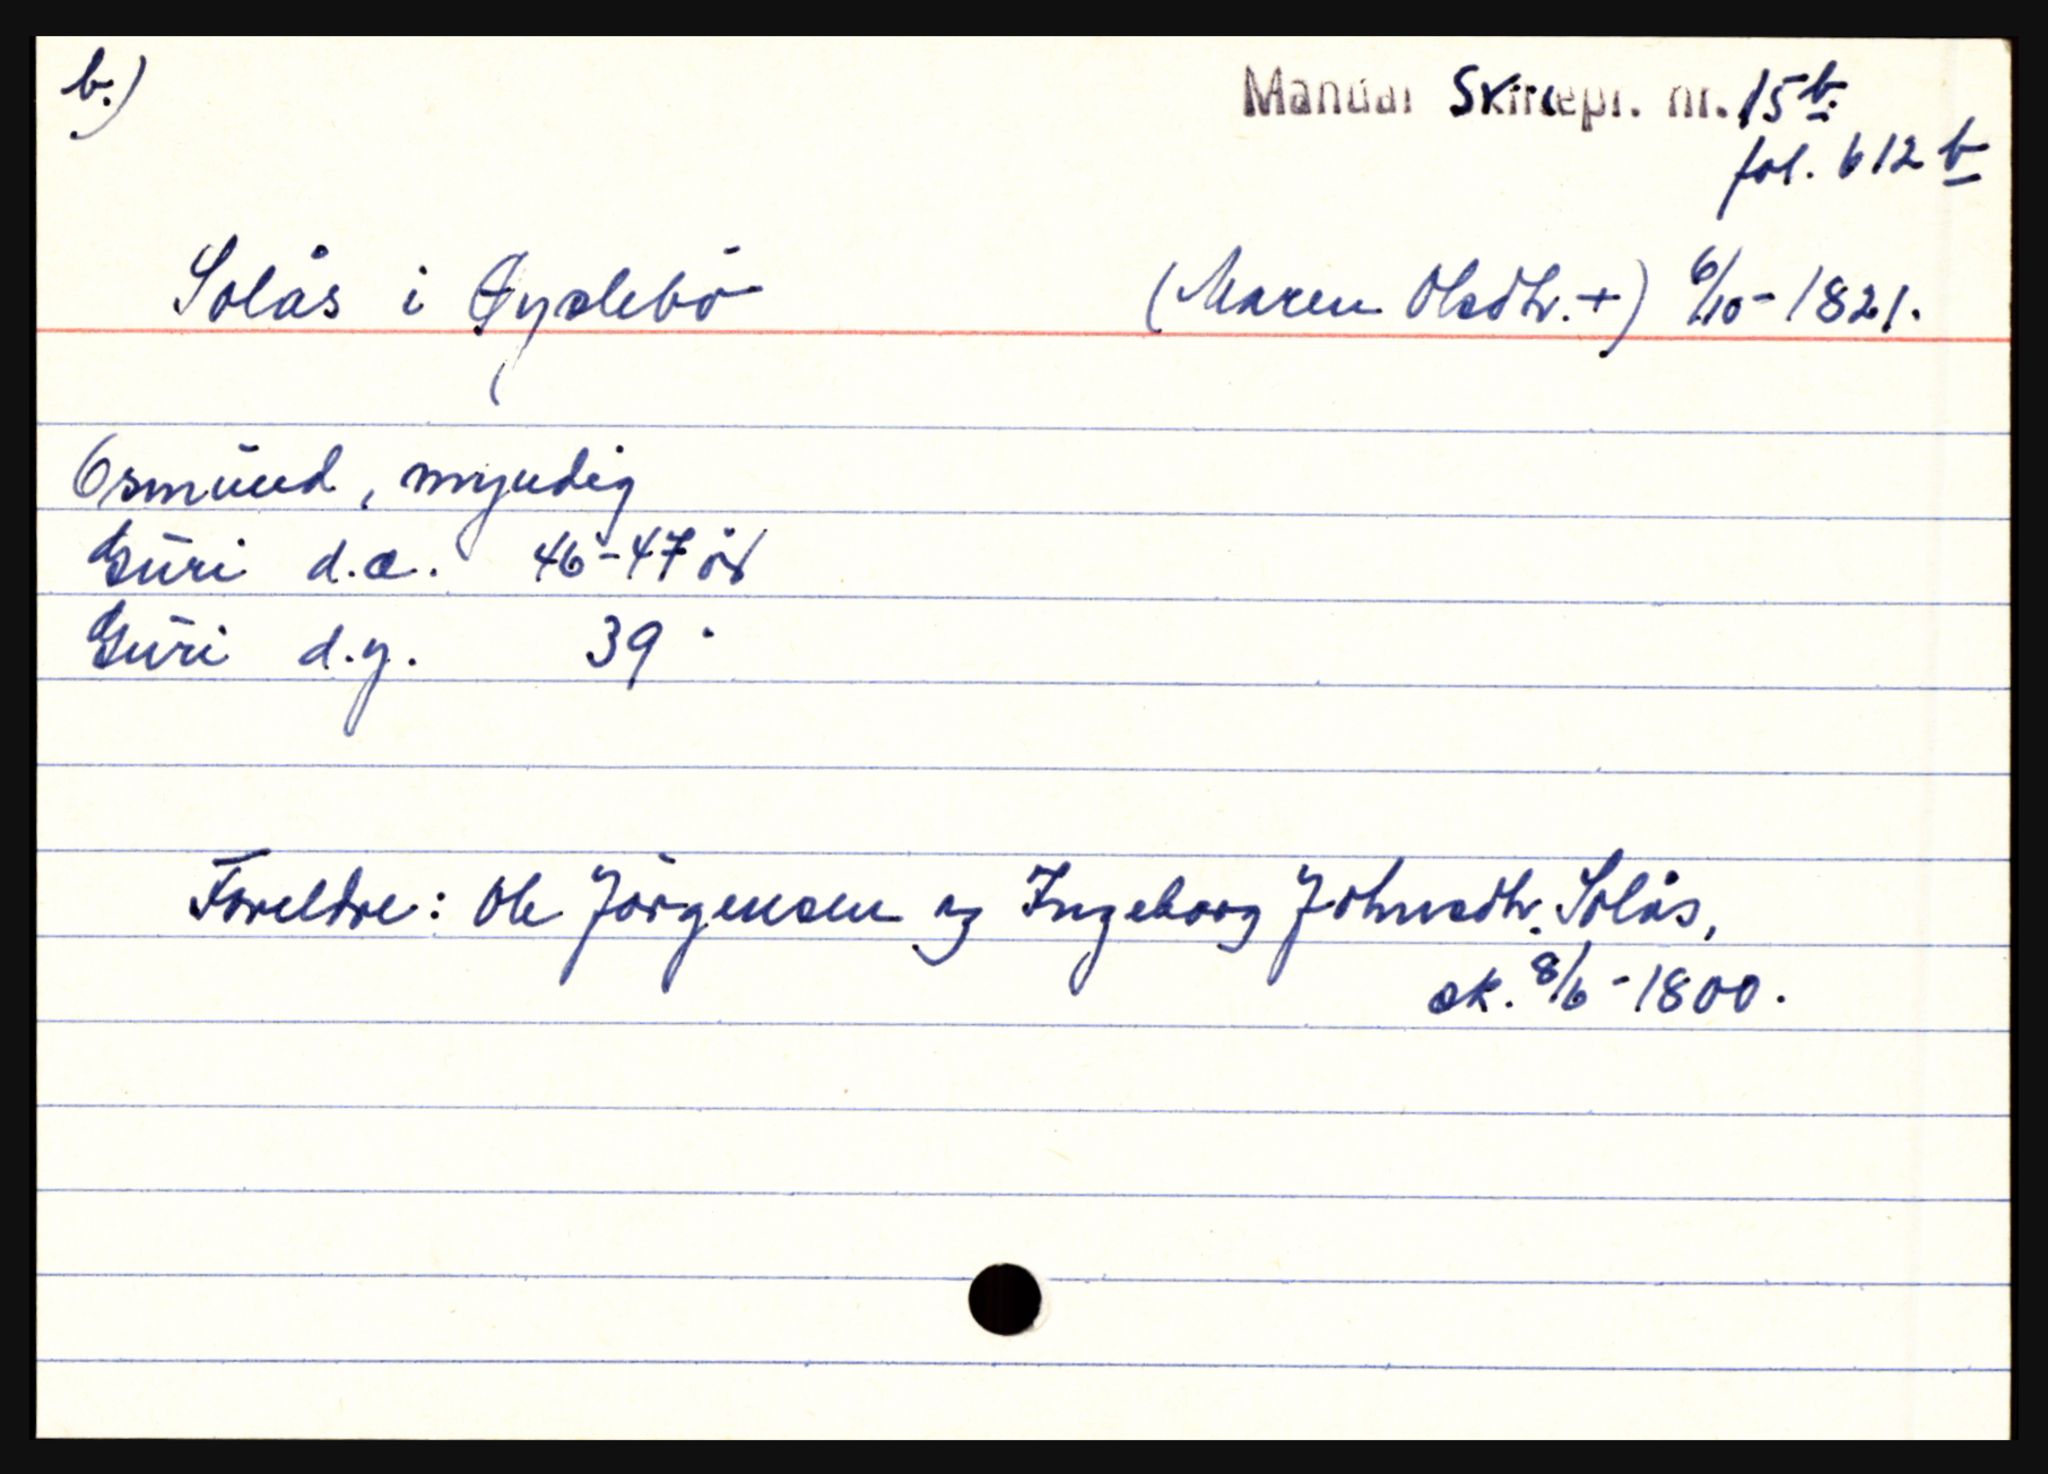 b.)
Mandal Skiftepr. nr. 15 b.
fol. 612 b
Solås i Øyslebö (Maren Olsdtr. +) 6/10-1821.
Osmund, myndig
Guri d.e. 46-47 år
Guri d.y. 39 "
Foreldre: Ole Jörgensen og Ingeborg Johnsdtr. Solås,
sk. 8/6-1800.